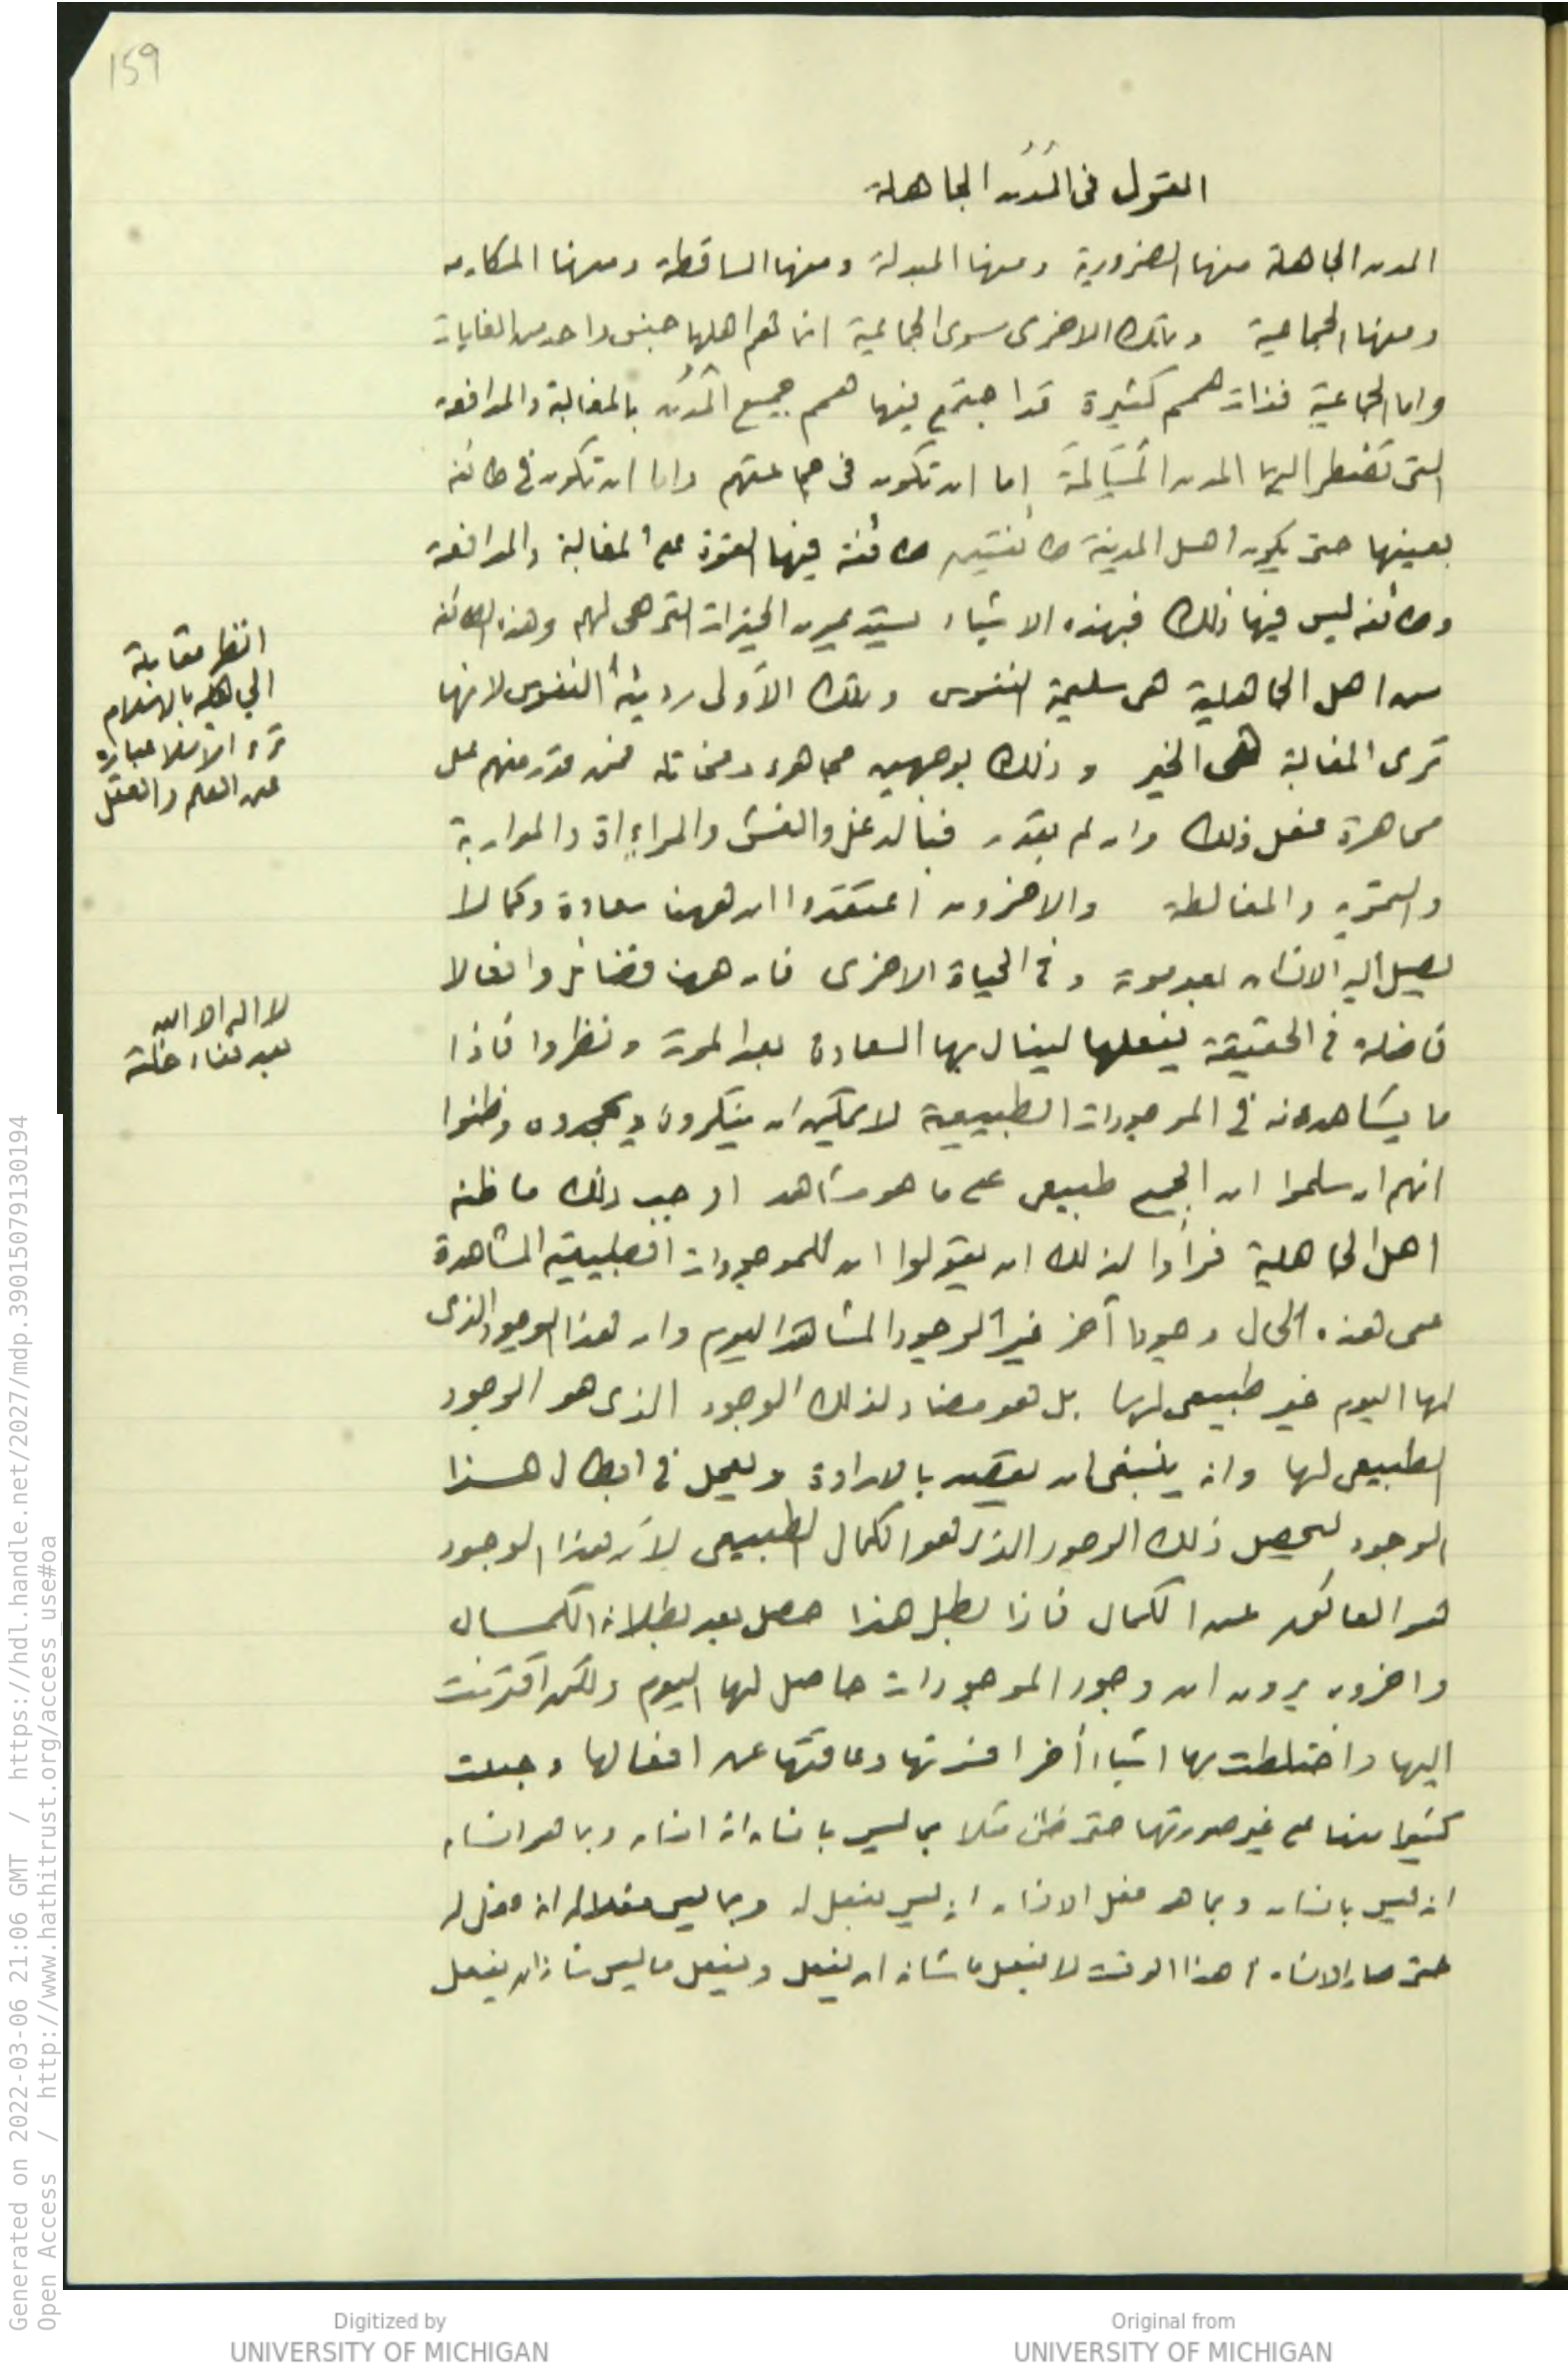 159
القول فى المُدُن الجاهلة
المدن الجاهلة منها الضرورية ومنها المبدلة ومنها الساقطة ومنها المكارمه
ومنها الجماعية وتلك الاخرى سوى الجماعية انما همم اهلها جنس واحد من الغايات
واما الجماعية فذات همم كثيرة قد اجتمع فيها همم جميع المُدُن بالمغالبة والمدافعه
التى تضطر اليها المدن المُسَالمَة اما ان تكون فى جماعتهم واما ان تكون فى طائفه
بعينها حتى يكون اهل المدينة طائفتين طائفة فيها القوة على المغالبة والمدافعة
وطائفه ليس فيها ذلك فبهذه الاشياء يستديمون الخيرات التى هى لهم وهذه الطائفه
من اهل الجاهلية هى سليمة النفوس وتلك الأولى رديئة النفوس لانها
ترى المغالبة هى الخير وذلك بوجهين مجاهره ومخاتله فمن قدر منهم على
مجاهرة فعل ذلك وان لم يقدر فبالدغل والغش والمراءاة والمواربة
والتمويه والمغالطه والاخرون اعتقدوا ان ههنا سعادة وكمالا
يصل اليه الانسان بعد موته وفى الحياة الاخرى فان ههنا فضائل وافعالا
فاضله فى الحقيقة يفعلها لينال بها السعادة بعد الموت ونظروا فاذا
ما يشاهدونه فى الموجودات الطبيعية لا يمكن ان ينكروه ويجحدوه وظنوا
انهم ان سلموا ان الجميع طبيعى على ما هو مشاهد اوجب ذلك ما ظنه
اهل الجاهلية فرأوا لذلك ان يقولوا ان للموجودات الطبيعيه المشاهدة
على هذه الحال وجودا آخر غير الوجود المشاهد اليوم وان هذا الوجود الذى
لها اليوم غير طبيعى لها بل هو مضاد لذلك الوجود الذى هو الوجود
الطبيعى لها وانه ينبغى ان يقصد بالارادة ويعمل فى ابطال هذا
الوجود ليحصل ذلك الوجود الذى هو الكمال الطبيعى لأن هذا الوجود
هو العائق عن الكمال فاذا بطل هذا حصل بعد بطلانه الكمال
واخرون يرون ان وجود الموجودات حاصل لها اليوم ولكن اقترنت
اليها واختلطت بها اشياء أخر افسدتها وعاقتها عن افعالها وجعلت
كثيرا منها على غير صورتها حتى ظن مثلا بما ليس بانسان انه انسان وبما هو انسان
انه ليس بانسان وبما هو فعل الانسان انه ليس بفعل له وبما ليس بفعل له انه فعل له
حتى صار الانسان فى هذا الوقت لا يفعل ما شانه ان يفعل ويفعل ما ليس شانه ان يفعل
انظر مقابلة
الجاهليه بالاسلام
عن العلم والعقل
لا اله الا الله
Generated on 2022-03-06 21:06 GMT / https://hdl.handle.net/2027/mdp.39015079130194
Open Access / http://www.hathitrust.org/access_use#oa
Digitized by
UNIVERSITY OF MICHIGAN
Original from
UNIVERSITY OF MICHIGAN